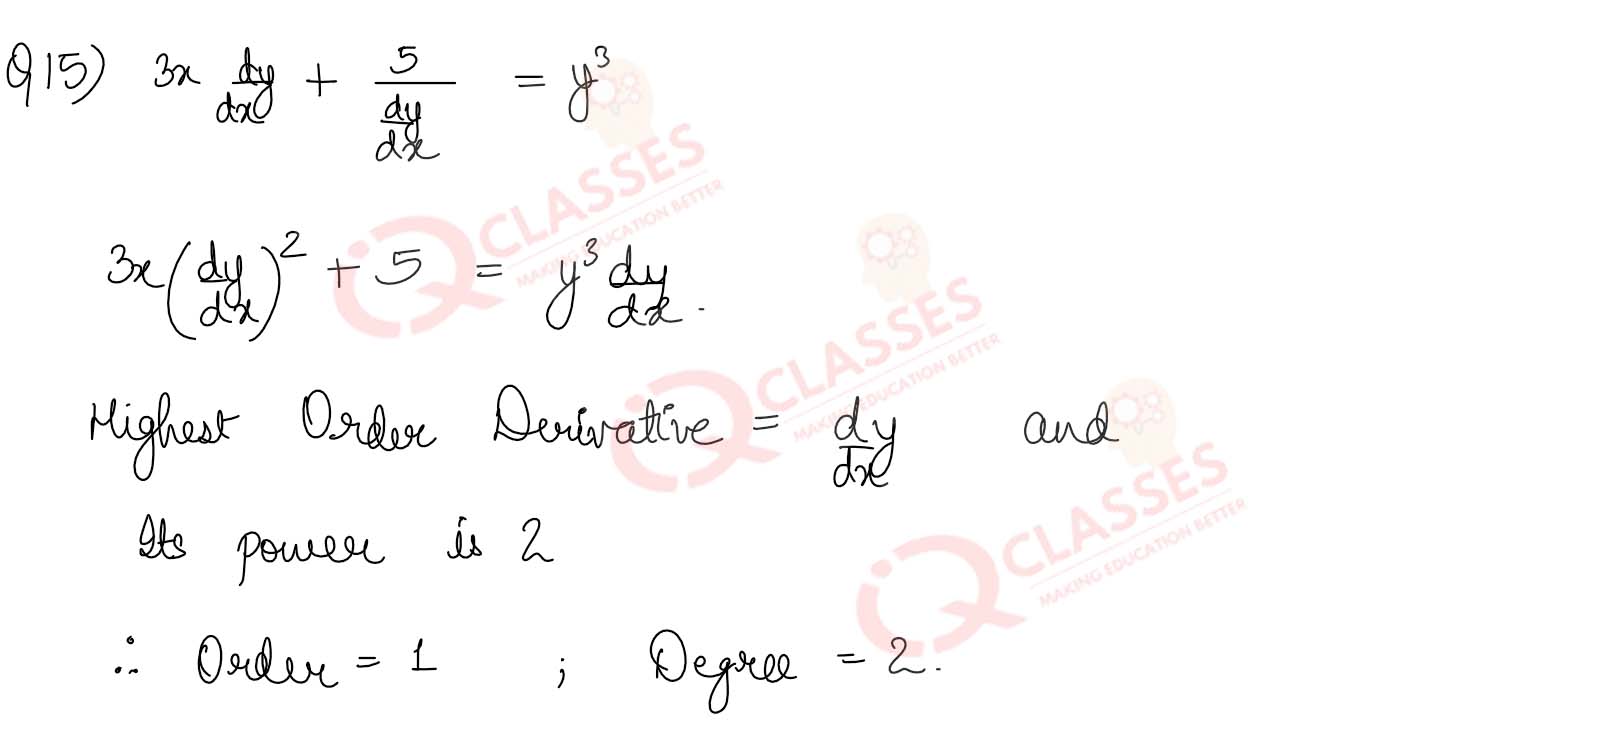 Q15) 3x dy/dx + 5/(dy/dx) = y³
3x(dy/dx)² + 5 = y³ dy/dx.
Highest Order Derivative = dy/dx and
Its power is 2
∴ Order = 1 ; Degree = 2.
IQ CLASSES
MAKING EDUCATION BETTER
IQ CLASSES
MAKING EDUCATION BETTER
IQ CLASSES
MAKING EDUCATION BETTER